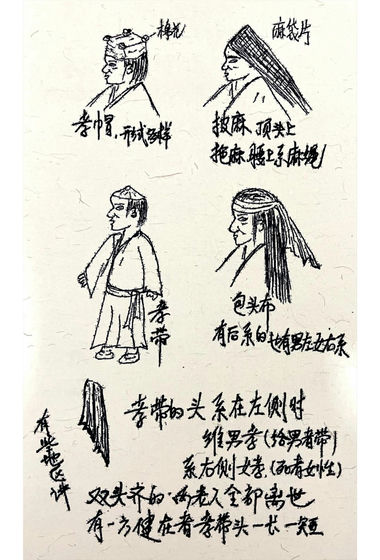 棉花
孝帽，形式多样
麻袋片
披麻 顶头上
拖麻 腰上系麻绳
孝带
包头布
有后系的 也有男左女右系
有些地区讲
孝带的头系在左侧时
维男孝（给男者带）
系右侧女孝（死者女性）
双头齐的 两老人全部离世
有一方健在者孝带头一长一短